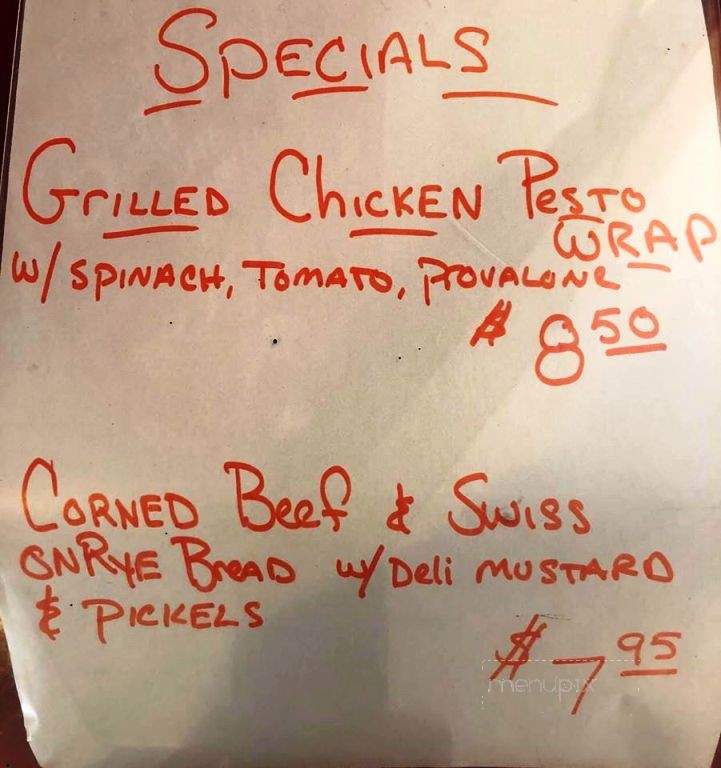 SPECIALS
GrILLED ChICKEN PesTO
WRAP
W/ SPINACH, TOMATO, PROVALONE
$ 8 50
CORNED Beef & SWISS
ON RYE BreAD w/ Deli MUSTARD
& PICKELS
$ 7 95
menupix